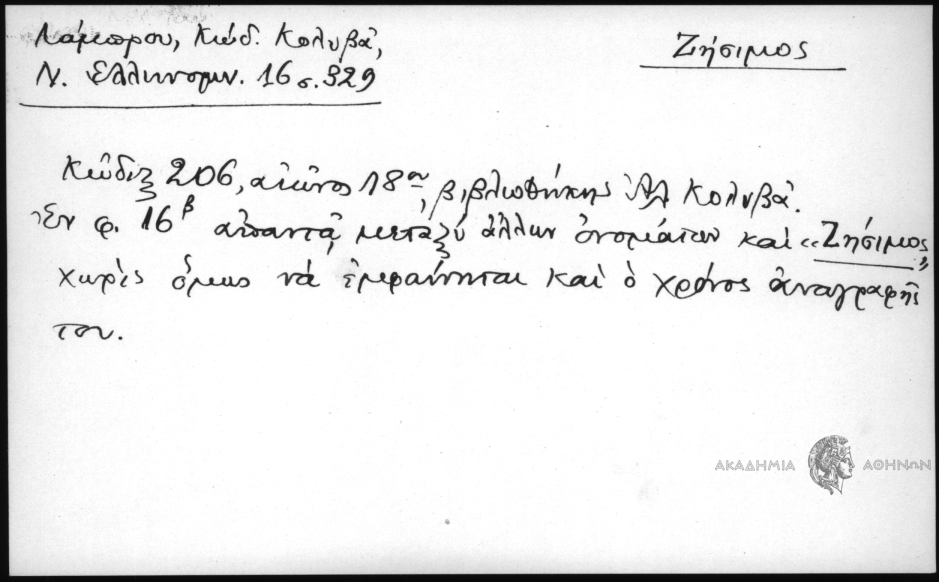 Λάμπρου, Κώδ. Κολυβᾶ,
Ν. Ἑλληνομν. 16 σ. 329
Ζήσιμος
Κῶδιξ 206, αἰῶνος 18ου, βιβλιοθήκης Ἀλ Κολυβᾶ.
Ἐν φ. 16β ἀπαντᾷ μεταξὺ ἄλλων ὀνομάτων καὶ «Ζήσιμος»
χωρὶς ὅμως νὰ ἐμφαίνηται καὶ ὁ χρόνος ἀναγραφῆς
του.
ΑΚΑΔΗΜΙΑ ΑΘΗΝΩΝ